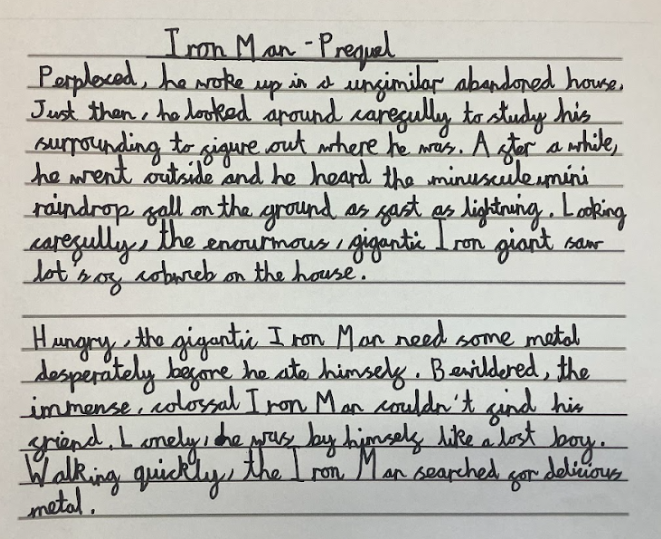 Iron Man - Prequel
Perplexed, he woke up in a unfimilar abandoned house.
Just then, he looked around carefully to study his
surrounding to figure out where he was. After a while,
he went outside and he heard the minuscule, mini
raindrop fall on the ground as fast as lightning. Looking
carefully, the enourmous, gigantic Iron giant saw
lot's of cobweb on the house.
Hungry, the gigantic Iron Man need some metal
desperately before he ate himself. Bewildered, the
immense, colossal Iron Man couldn't find his
friend. Lonely, he was by himself like a lost boy.
Walking quickly, the Iron Man searched for delicious
metal.